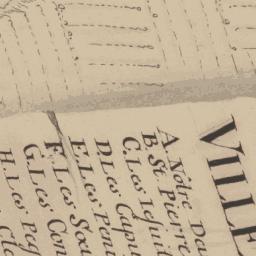 VILLE
A. Nôtre Da
B. St. Pierre
C. Les Iesuit
D. Les Capu
E. Les Peni
F. Les Sœu
G. Les Con
H. Les Peg